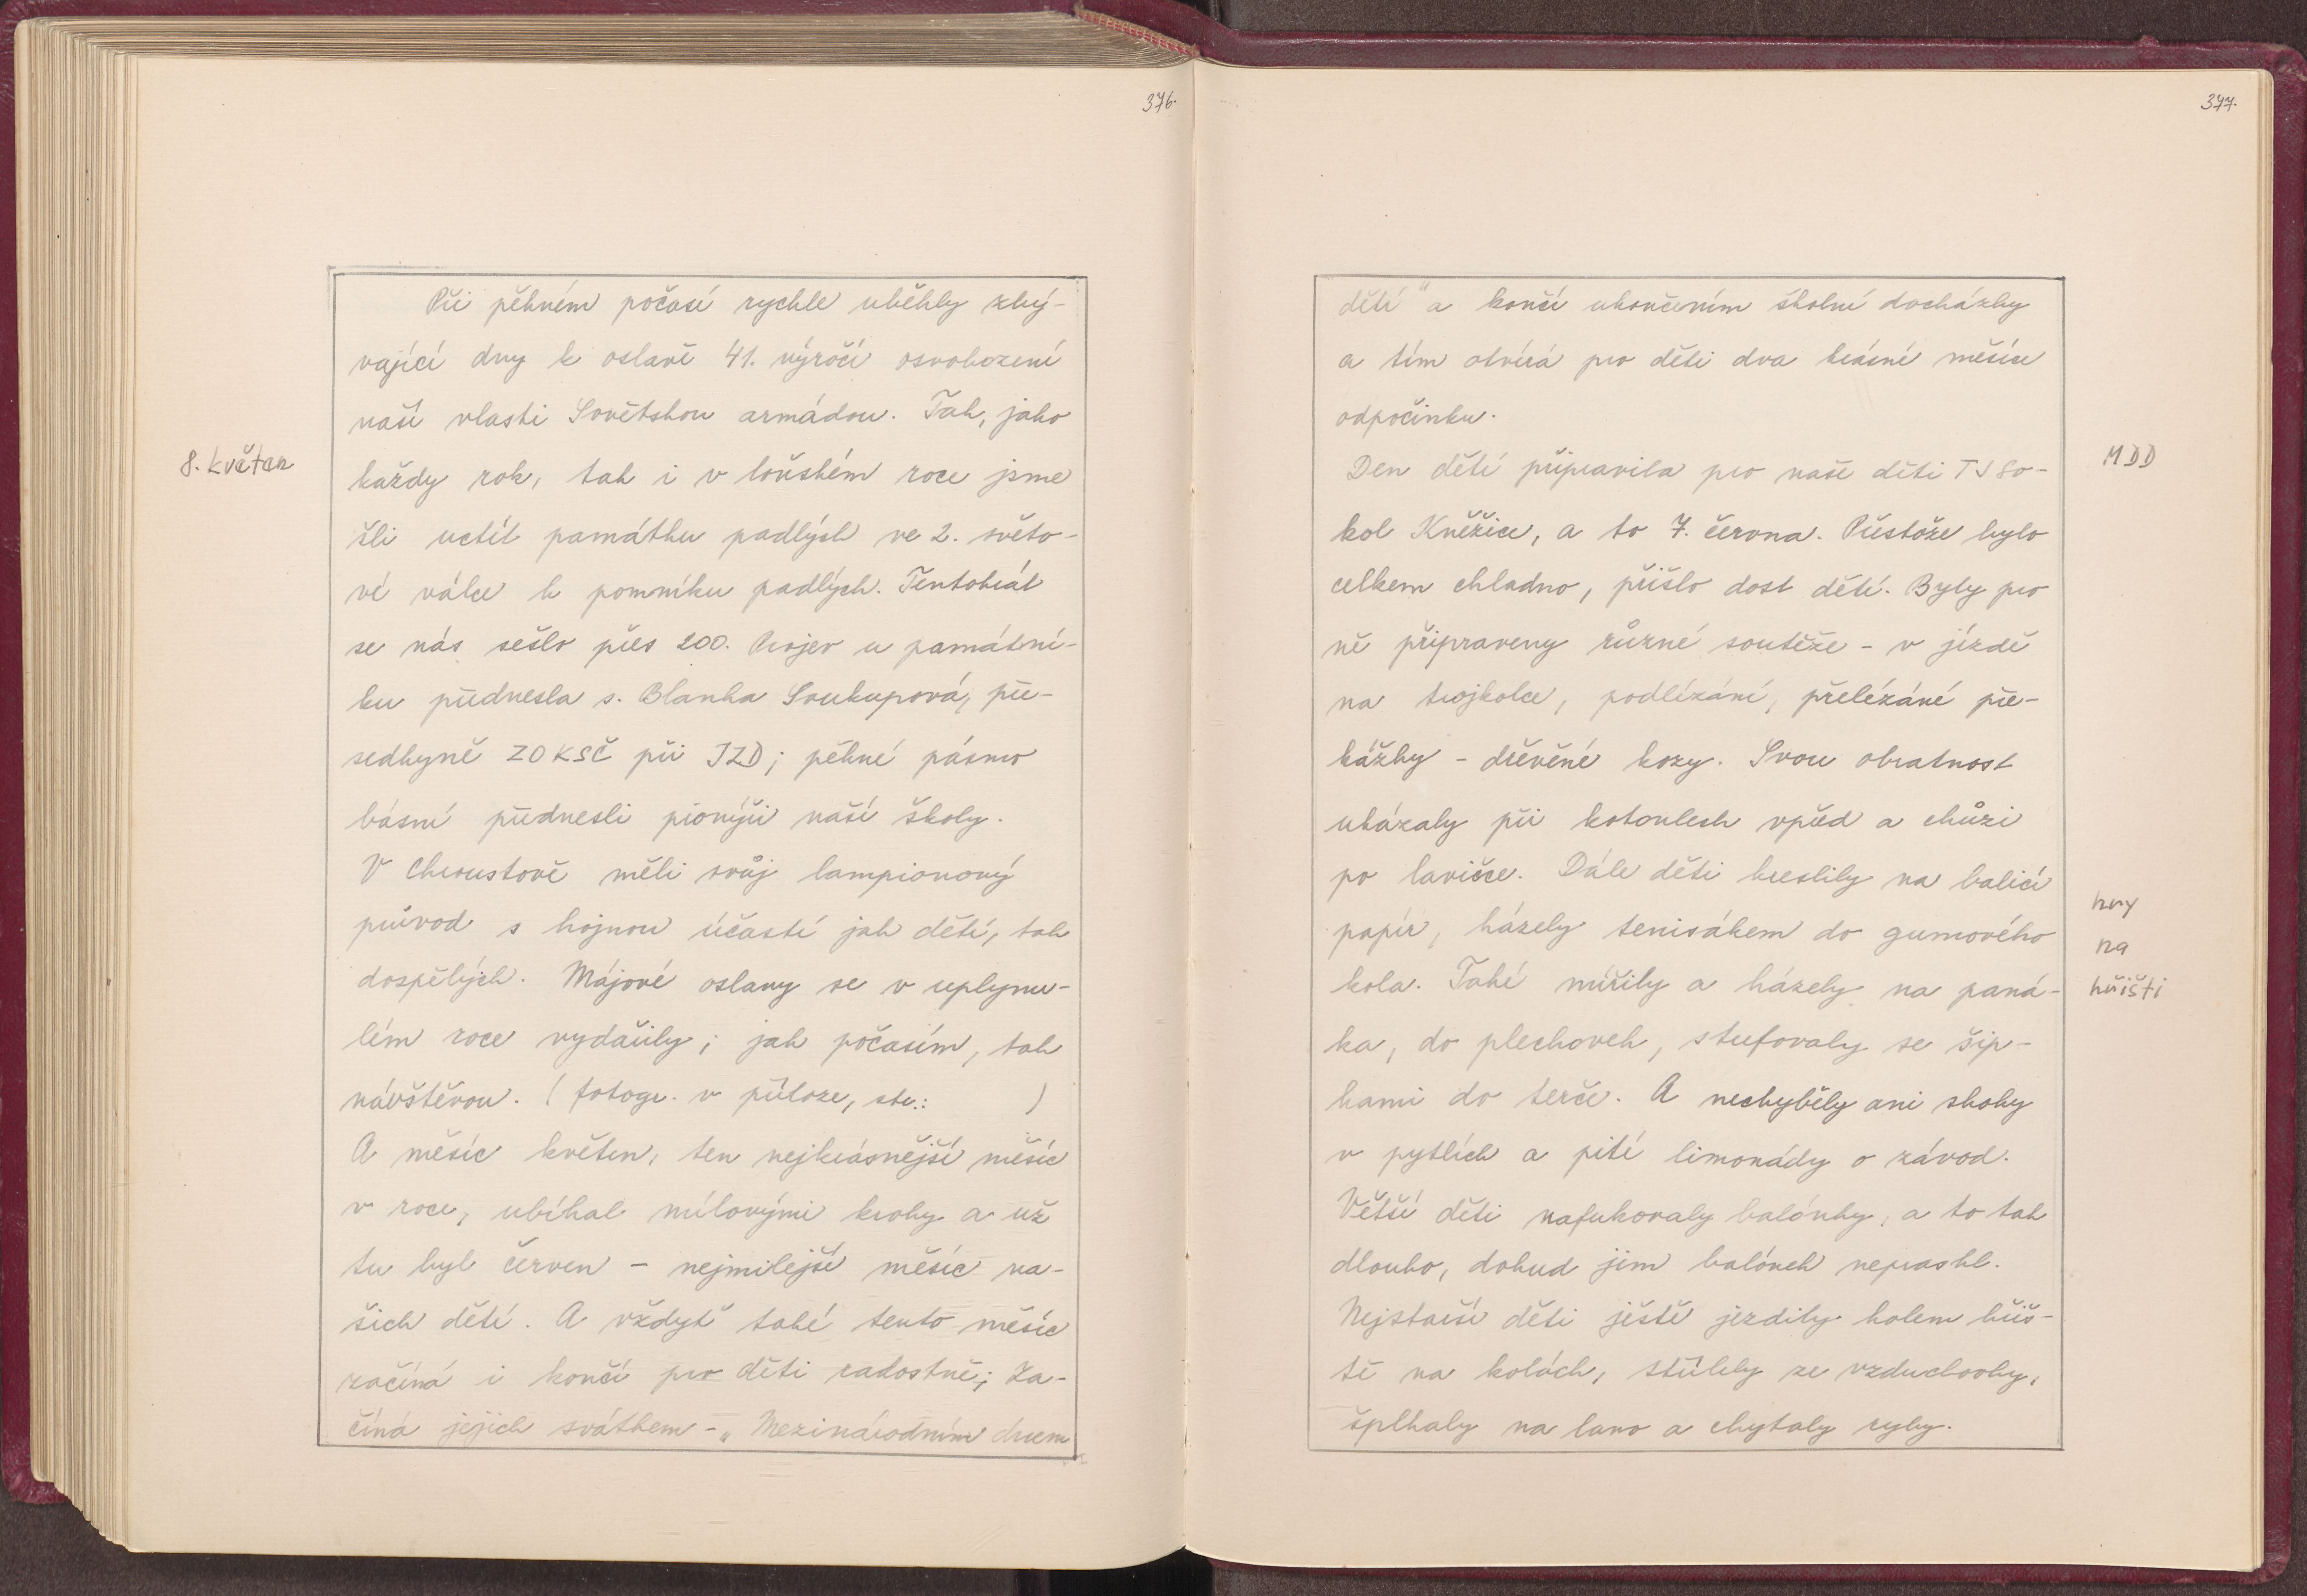 376.
Při pěkném počasí rychle uběhly zbý-
vající dny k oslavě 41. výročí osvobození
naší vlasti Sovětskou armádou. Tak, jako
8. květen
každy rok, tak i v loňském roce jsme
šli uctít památku padlých ve 2. světo-
vé válce k pomníku padlých. Tentokrát
se nás sešlo přes 200. Projev u památní-
ku přednesla s. Blanka Soukupová, pře-
sedkyně ZO KSČ při JZD; pěkné pásmo
básní přednesli pionýři naší školy.
V Chroustově měli svůj lampionový
průvod s hojnou účastí jak dětí, tak
dospělých. Májové oslavy se v uplynu-
lém roce vydařily; jak počasím, tak
návštěvou. (fotogr. v příloze, str.: )
A měsíc květen, ten nejkrásnější měsíc
v roce, ubíhal mílovými kroky a už
tu byl červen - nejmilejší měsíc na-
šich dětí. A vždyť také tento měsíc
začíná i končí pro děti radostně; Za-
číná jejich svátkem - „Mezinárodním dnem
377.
dětí" a končí ukončením školní docházky
a tím otvírá pro děti dva krásné měsíce
odpočinku.
MDD
Den dětí připravila pro naše děti TJ So-
kol Kněžice, a to 7. června. Přestože bylo
celkem chladno, přišlo dost dětí. Byly pro
ně připraveny různé soutěže - v jízdě
na trojkolce, podlézání, přelézání pře-
kážky - dřevěné kozy. Svou obratnost
ukázaly při kotoulech vpřed a chůzi
po lavičce. Dále děti kreslily na balicí
hry
na
hřišti
papír, házely tenisákem do gumového
kola. Také mířily a házely na paná-
ka, do plechovek, strefovaly se šip-
kami do terče. A nechyběly ani skoky
v pytlích a pití limonády o závod.
Větší děti nafukovaly balónky, a to tak
dlouho, dokud jim balónek nepraskl.
Nejstarší děti ještě jezdily kolem hřiš-
tě na kolách, střílely ze vzduchovky,
šplhaly na lano a chytaly ryby.